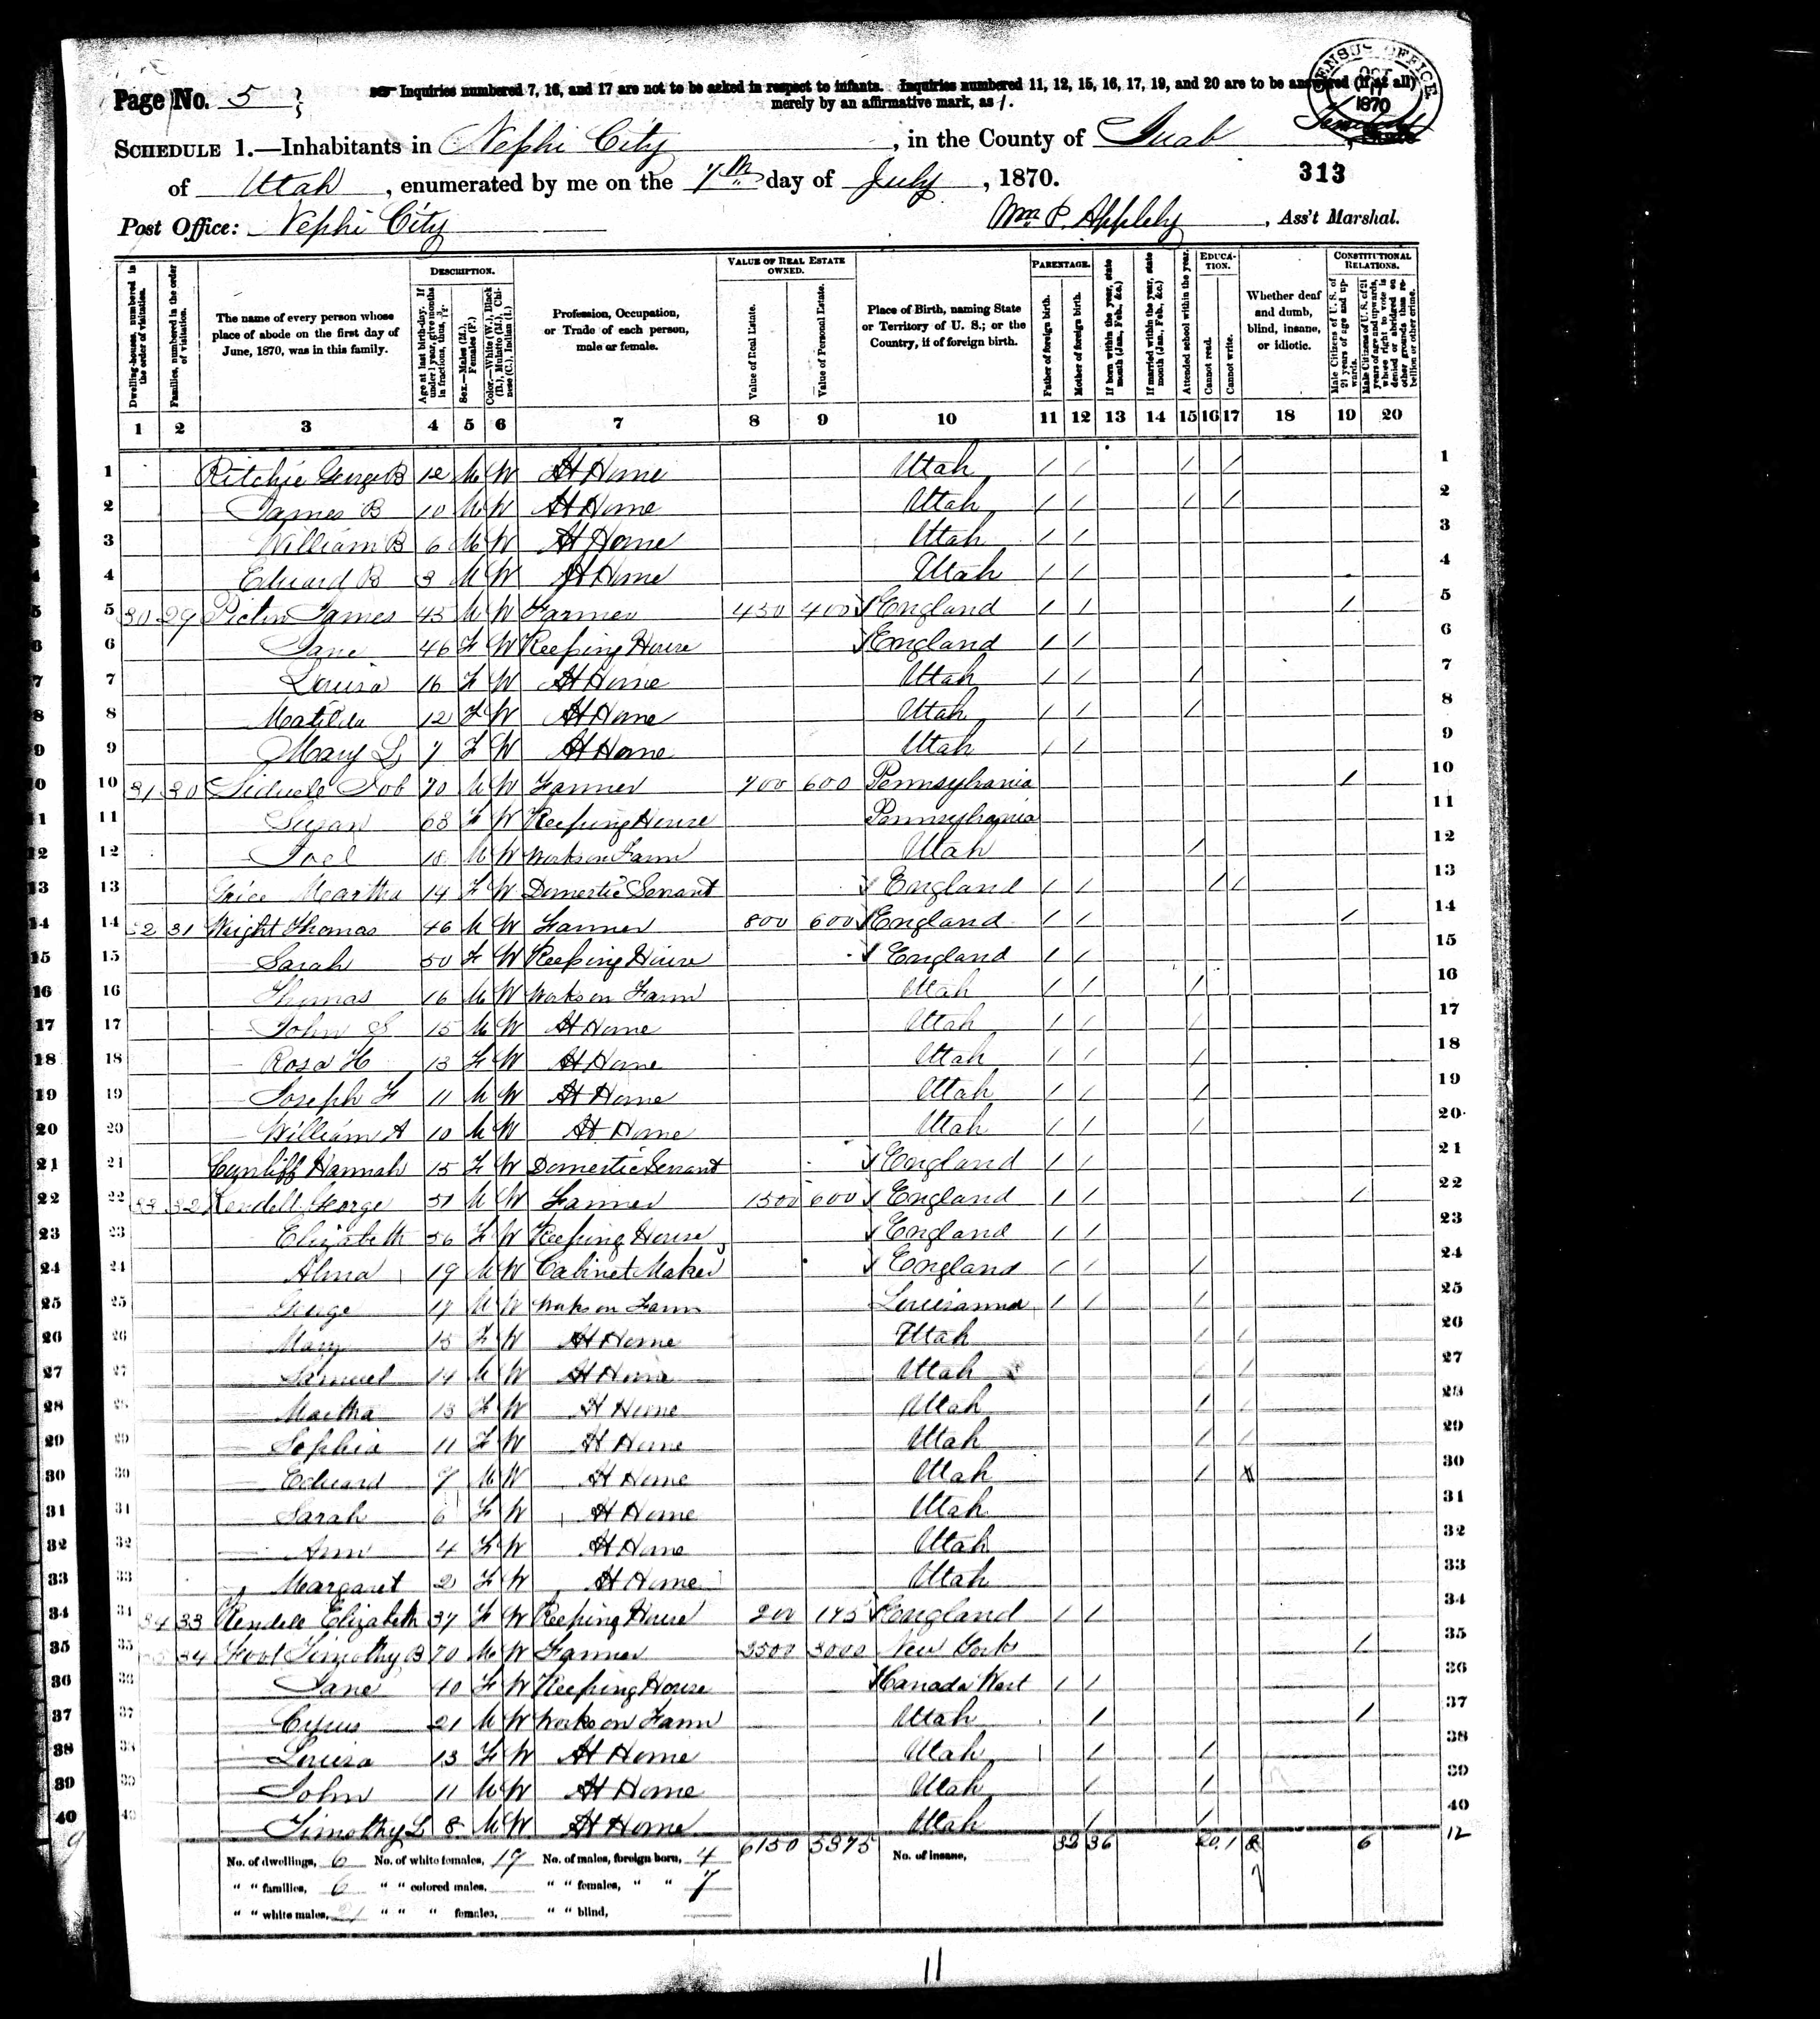 Page No. 5
Inquiries numbered 7, 16, and 17 are not to be asked in respect to infants. Inquiries numbered 11, 12, 15, 16, 17, 19, and 20 are to be answered (if at all)
merely by an affirmative mark, as /.
CENSUS OFFICE
OCT
1870
SCHEDULE 1.—Inhabitants in Nephi City, in the County of Juab
of Utah, enumerated by me on the 7th day of July, 1870.
313
Post Office: Nephi City
Wm P. Appleby, Ass't Marshal.
Dwelling-houses, numbered in the order of visitation.
Families, numbered in the order of visitation.
The name of every person whose place of abode on the first day of June, 1870, was in this family.
DESCRIPTION.
Age at last birth-day. If under 1 year, give months in fractions, thus, 3/12.
Sex.—Males (M.), Females (F.)
Color.—White (W.), Black (B.), Mulatto (M.), Chinese (C.), Indian (I.)
Profession, Occupation, or Trade of each person, male or female.
VALUE OF REAL ESTATE OWNED.
Value of Real Estate.
Value of Personal Estate.
Place of Birth, naming State or Territory of U. S.; or the Country, if of foreign birth.
PARENTAGE.
Father of foreign birth.
Mother of foreign birth.
If born within the year, state month (Jan., Feb., &c.)
If married within the year, state month (Jan., Feb., &c.)
Attended school within the year.
EDUCATION.
Cannot read.
Cannot write.
Whether deaf and dumb, blind, insane, or idiotic.
CONSTITUTIONAL RELATIONS.
Male Citizens of U. S. of 21 years of age and upwards.
Male Citizens of U. S. of 21 years of age and upwards, where right to vote is denied or abridged on other grounds than rebellion or other crime.
1 2 3 4 5 6 7 8 9 10 11 12 13 14 15 16 17 18 19 20
1 Ritchie George B 12 M W At Home Utah / / / / 1
2 James B 10 M W At Home Utah / / / / 2
3 William B 6 M W At Home Utah / / 3
4 Edward B 3 M W At Home Utah / / 4
5 30 29 James 45 M W Farmer 450 400 England / / / 5
6 Jane 46 F W Keeping House England / / 6
7 Louisa 16 F W At Home Utah / / / 7
8 Matilda 12 F W At Home Utah / / / 8
9 Mary L 7 F W At Home Utah / / 9
10 31 30 Job 70 M W Farmer 700 600 Pennsylvania / 10
11 Susan 68 F W Keeping House Pennsylvania 11
12 Joel 18 M W Works on Farm Utah / 12
13 Martha 14 F W Domestic Servant England / / / / 13
14 32 31 Wright Thomas 46 M W Farmer 800 600 England / / / 14
15 Sarah 50 F W Keeping House England / / 15
16 Thomas 16 M W Works on Farm Utah / / / 16
17 John S 15 M W At Home Utah / / / 17
18 Rosa H 13 F W At Home Utah / / / 18
19 Joseph F 11 M W At Home Utah / / / 19
20 William A 10 M W At Home Utah / / / 20
21 Cunliff Hannah 15 F W Domestic Servant England / / 21
22 33 32 Kendell George 51 M W Farmer 1500 600 England / / / 22
23 Elizabeth 56 F W Keeping House England / / 23
24 Alma 19 M W Cabinet Maker England / / / 24
25 George 17 M W Works on Farm Louisanna / / / 25
26 Mary 15 F W At Home Utah / / 26
27 Samuel 14 M W At Home Utah / / 27
28 Martha 13 F W At Home Utah / / 28
29 Sophia 11 F W At Home Utah / / 29
30 Edward 9 M W At Home Utah / 30
31 Sarah 6 F W At Home Utah 31
32 Ann 4 F W At Home Utah 32
33 Margaret 2 F W At Home Utah 33
34 34 33 Kendell Elizabeth 37 F W Keeping House 200 175 England / / 34
35 34 Foot Timothy B 70 M W Farmer 2500 3000 New York / 35
36 Jane 40 F W Keeping House Canada West / / 36
37 Cyrus 21 M W Works on Farm Utah / / 37
38 Louisa 13 F W At Home Utah / / 38
39 John 11 M W At Home Utah / / 39
40 Timothy L 8 M W At Home Utah / / 40
No. of dwellings, 6 No. of white females, 19 No. of males, foreign born, 4 6150 5375 No. of insane, 20 1 6 12
" " families, 6 " " colored males, " " females, " " 7
" " white males, 21 " " " females, " " blind,
11